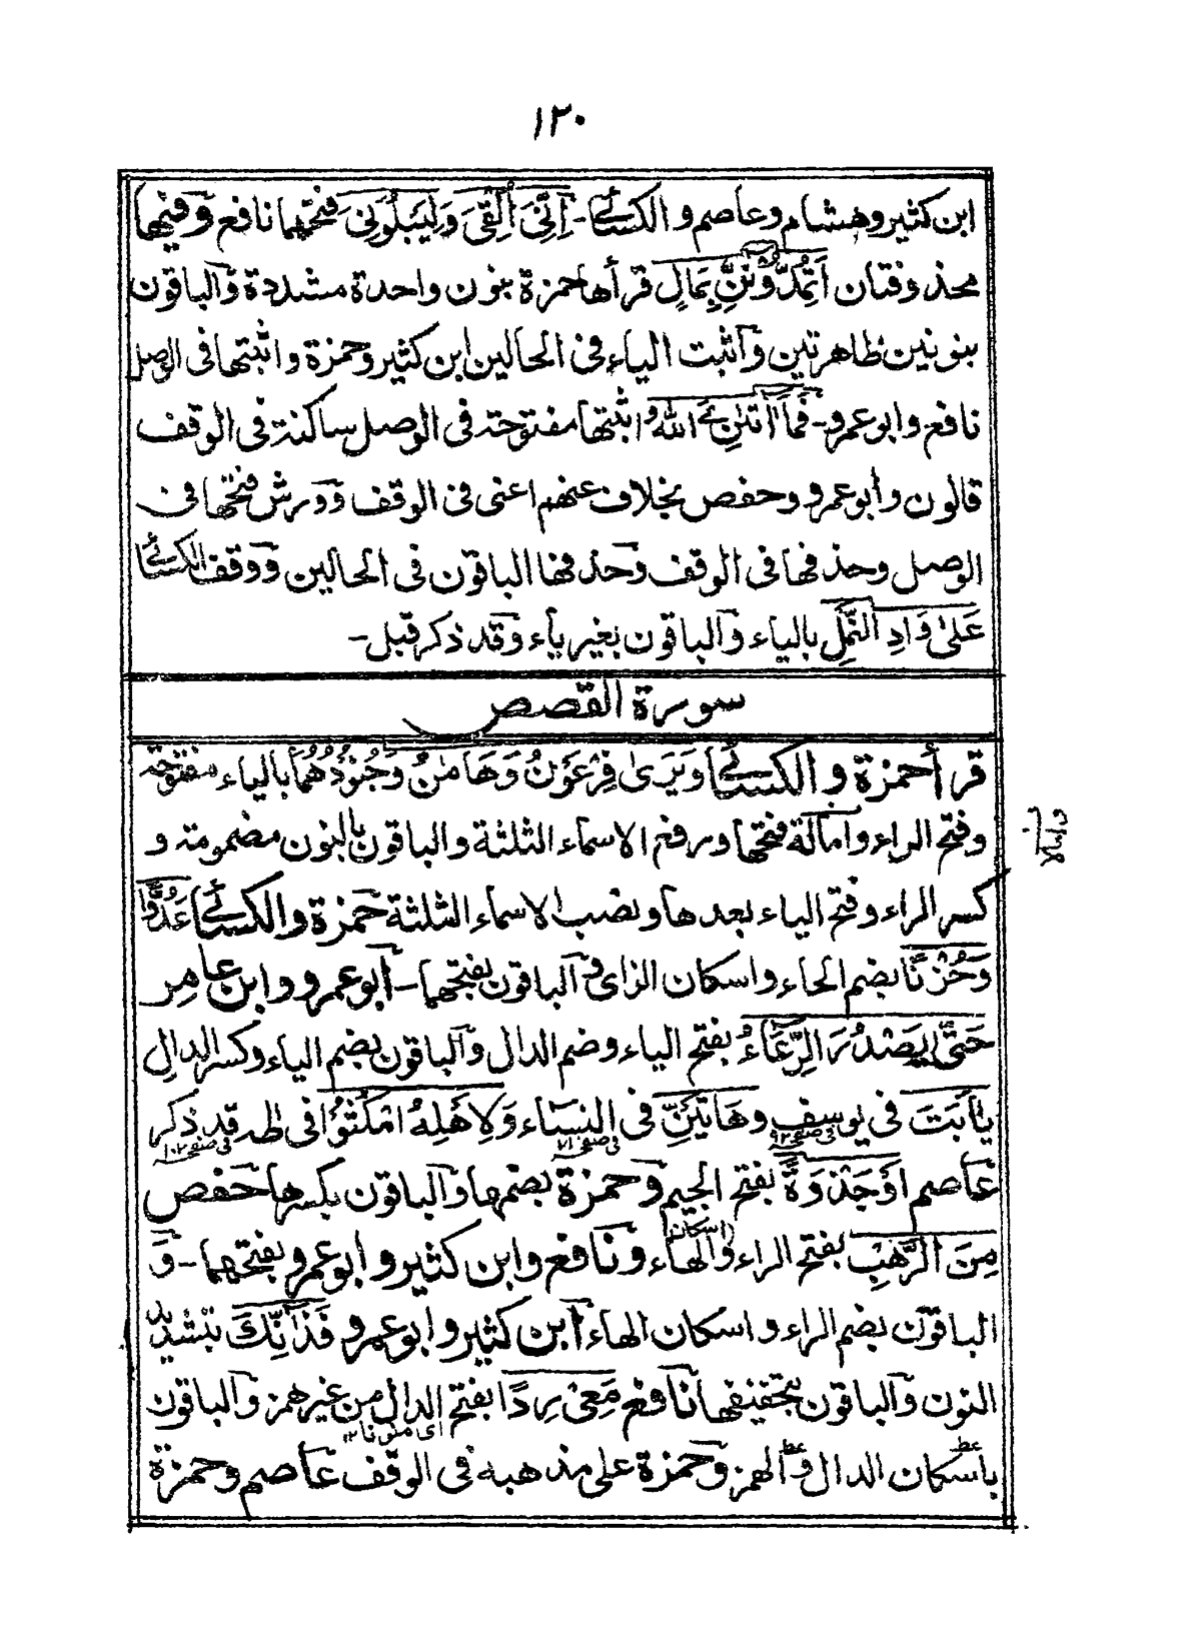 ١٢٠
ابن كثير وهشام وعاصم والكسائى - اِنِّىَ اُلْقِىَ وَلِيَبْلُوَنِىَ فتحهما نافع وفيها
محذوفتان اَتُمِدُّوْنَنِ بِمَالٍ قرأها حمزة بنون واحدة مشددة والباقون
بنونين ظاهرتين وأثبت الياء فى الحالين ابن كثير وحمزة واثبتها فى الوصل
نافع وابو عمرو - فَمَاۤ اٰتٰىنِۦَ اللهُ اثبتها مفتوحة فى الوصل ساكنة فى الوقف
قالون وأبو عمرو وحفص بخلاف عنهم اعنى فى الوقف وورش فتحها فى
الوصل وحذفها فى الوقف وحذفها الباقون فى الحالين ووقف الكسائى
عَلىٰ وَادِ النَّمْلِ بالياء والباقون بغير ياء وقد ذكر قبل -
سورة القصص
قرأ حمزة والكسائى وَيَرىٰ فِرْعَوْنُ وَهَامٰنُ وَجُنُوْدُهُمَا بالياء مفتوحة
وفتح الراء وامالة فتحها ورفع الاسماء الثلثة والباقون بالنون مضمومة و
كسر الراء وفتح الياء بعدها ونصب الاسماء الثلثة حمزة والكسائى عَدُوًّا
وَحُزْنًا بضم الحاء واسكان الزاى والباقون بفتحهما - أبو عمرو وابن عامر
حَتّٰى يَصْدُرَ الرِّعَاۤءُ بفتح الياء وضم الدال والباقون بضم الياء وكسر الدال
يٰاَبَتَ فى يوسف وهَاتَيْنِّ فى النساء وَلِاَهْلِهُ امْكُثُوْا فى طه قد ذكر
فى صفحہ ٩٢ فى صفحہ ٧١ فى صفحہ ١٠٢
عاصم اَوْ جَذْوَةٍ بفتح الجيم وحمزة بضمها والباقون بكسرها حفص
مِنَ الرَّهْبِ بفتح الراء واسكان الهاء ونافع وابن كثير وابو عمرو بفتحهما - و
الباقون بضم الراء واسكان الهاء ابن كثير وابو عمرو فَذٰۤنِّكَ بتشديد
النون والباقون بتخفيفها نافع مَعِىَ رِدًا بفتح الدال من غير همز والباقون
اى منونا ١٢
باسكان الدال والهمز وحمزة على مذهبه فى الوقف عاصم وحمزة